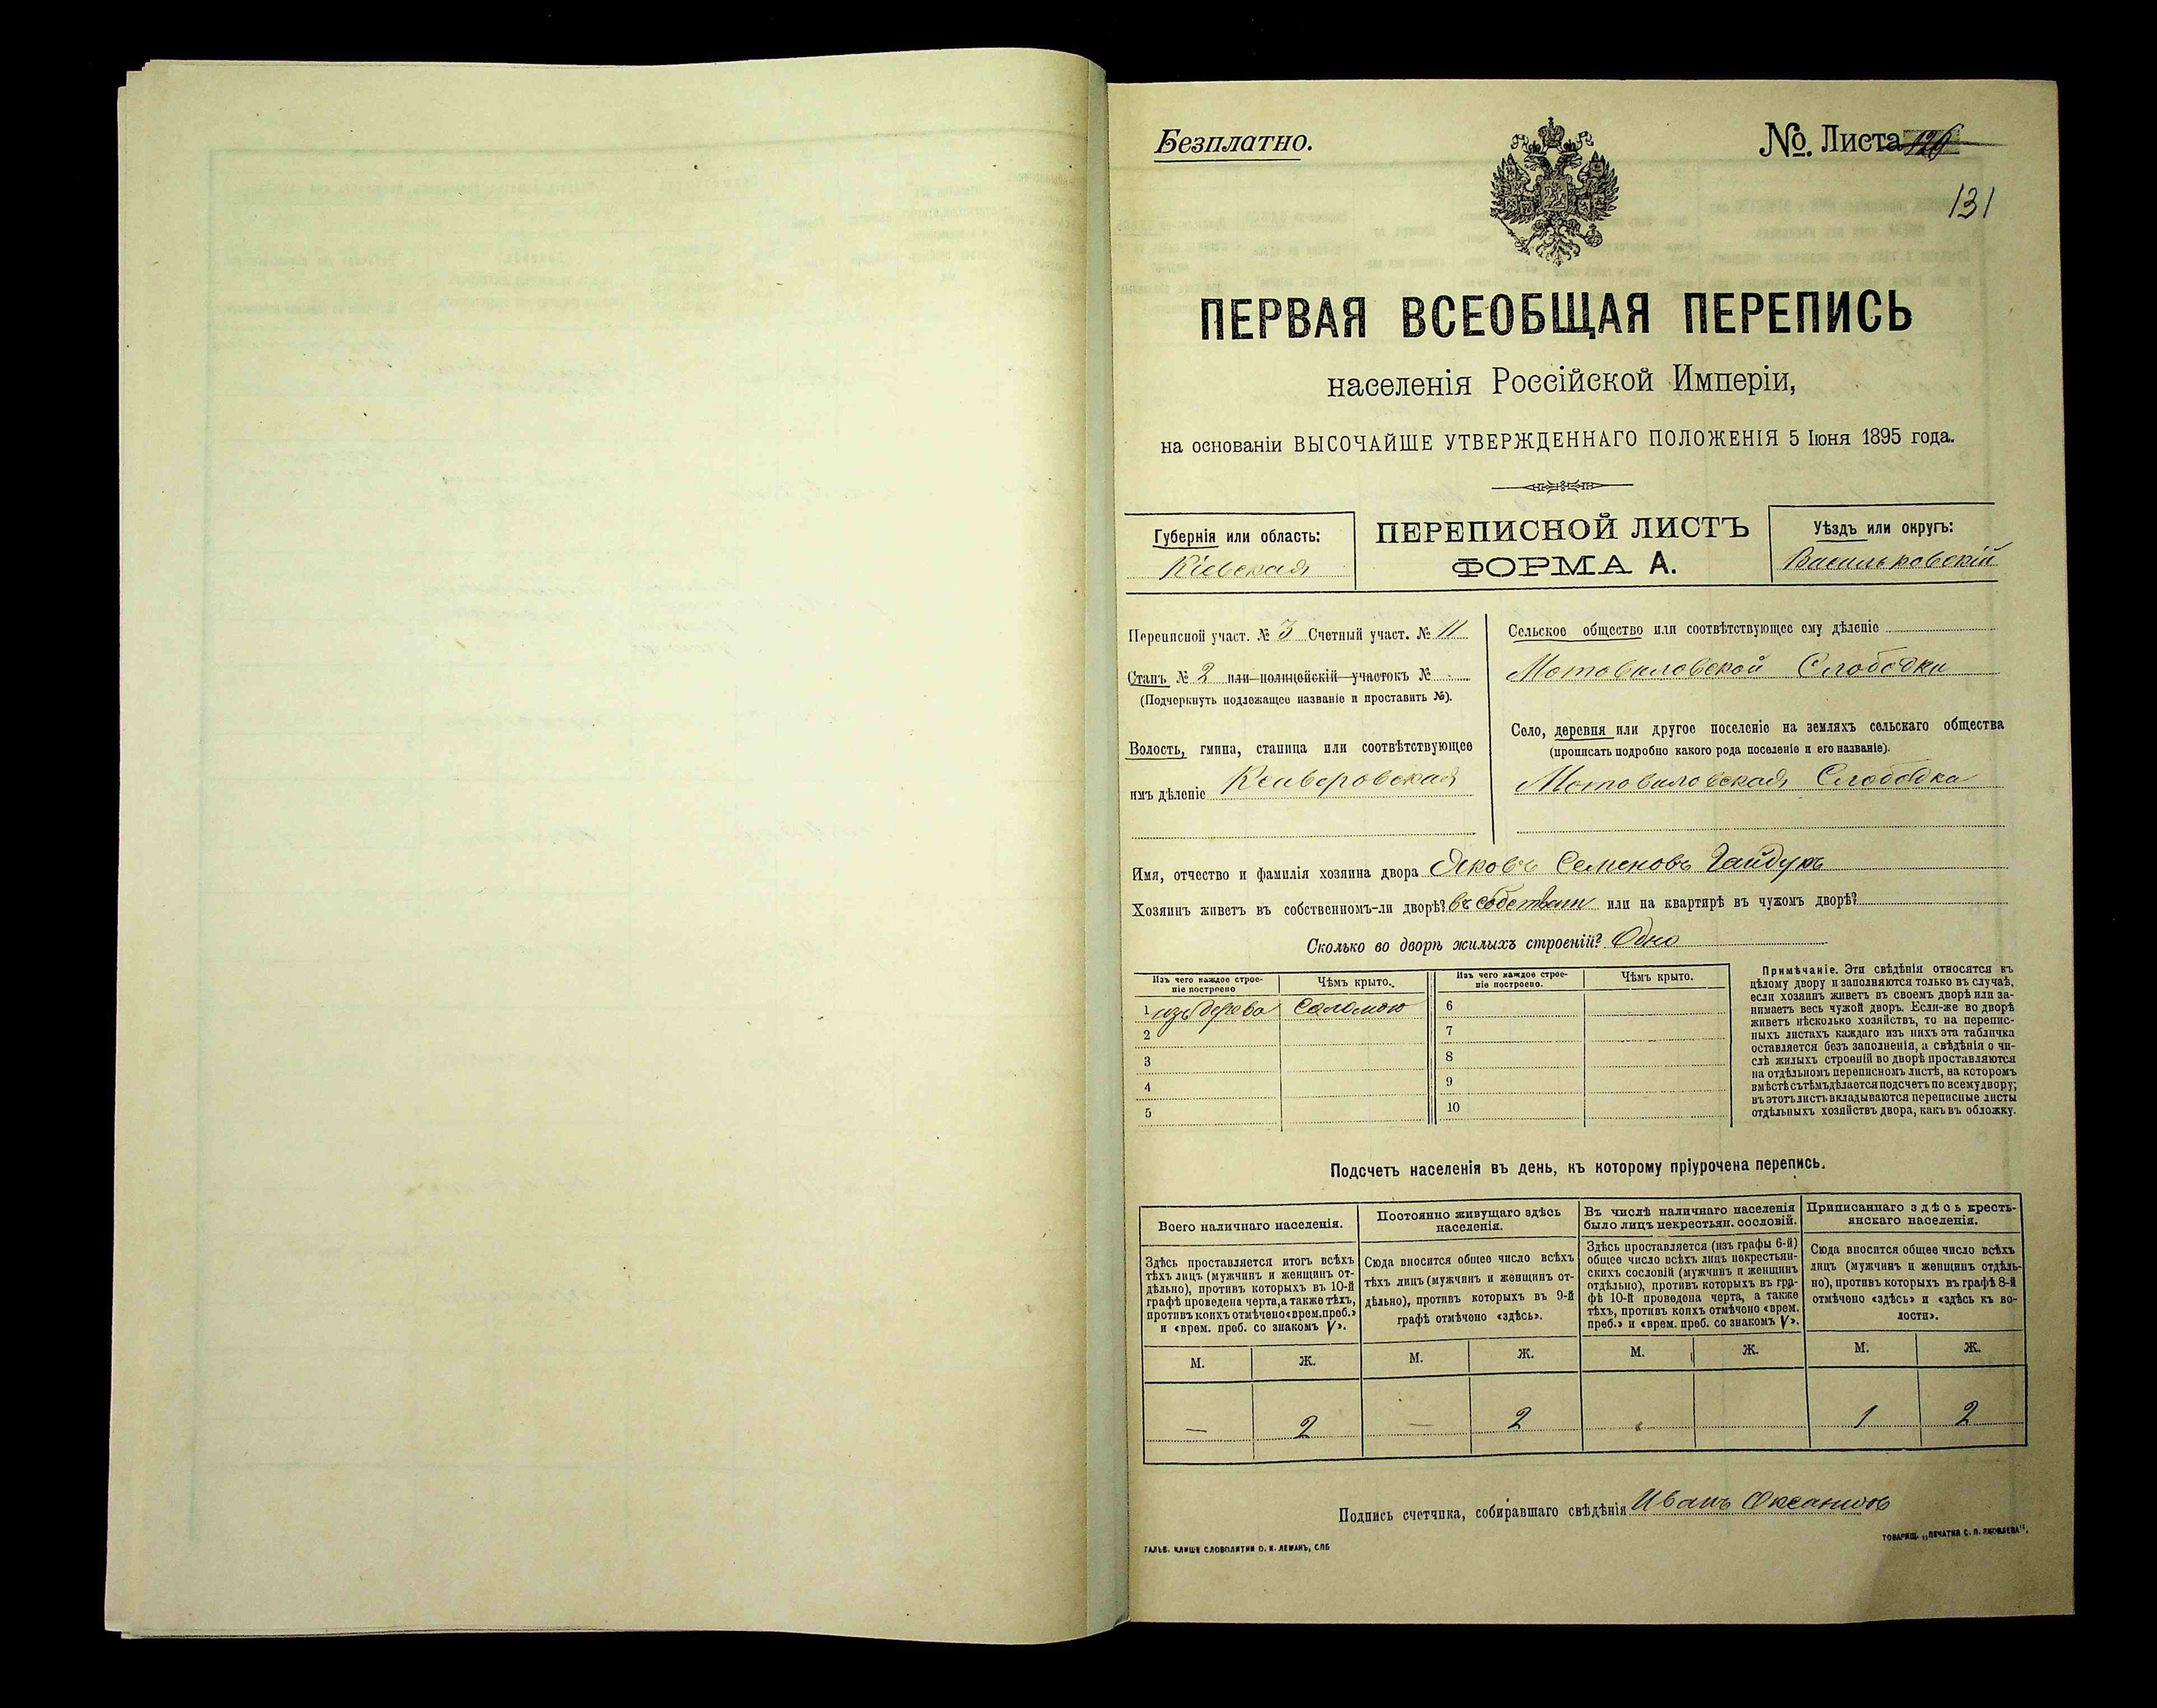 Безплатно.
№. Листа 126
131
ПЕРВАЯ ВСЕОБЩАЯ ПЕРЕПИСЬ
населенія Россійской Имперіи,
на основаніи ВЫСОЧАЙШЕ УТВЕРЖДЕННАГО ПОЛОЖЕНІЯ 5 Іюня 1895 года.
Губернія или область:
Кіевская
ПЕРЕПИСНОЙ ЛИСТЪ
ФОРМА А.
Уѣздъ или округъ:
Васильковскій
Переписной участ. № 3 Счетный участ. № 11
Станъ № 2 или полицейскій участокъ №
(Подчеркнуть подлежащее названіе и проставить №).
Волость, гмина, станица или соотвѣтствующее
имъ дѣленіе Ксаверовская
Сельское общество или соотвѣтствующее ему дѣленіе
Мотовиловской Слободки
Село, деревня или другое поселеніе на земляхъ сельскаго общества
(прописать подробно какого рода поселеніе и его названіе).
Мотовиловская Слободка
Имя, отчество и фамилія хозяина двора Яковъ Семеновъ Гайдукъ
Хозяинъ живетъ въ собственномъ-ли дворѣ? въ собствен или на квартирѣ въ чужомъ дворѣ?
Сколько во дворѣ жилыхъ строеній? Одно
Изъ чего каждое строе-
ніе построено
Чѣмъ крыто.
Изъ чего каждое строе-
ніе построено.
Чѣмъ крыто.
1 изъ дерева соломою
2
3
4
5
6
7
8
9
10
Примѣчаніе. Эти свѣдѣнія относятся къ
цѣлому двору и заполняются только въ случаѣ,
если хозяинъ живетъ въ своемъ дворѣ или за-
нимаетъ весь чужой дворъ. Если-же во дворѣ
живетъ нѣсколько хозяйствъ, то на перепис-
ныхъ листахъ каждаго изъ нихъ эта табличка
оставляется безъ заполненія, а свѣдѣнія о чи-
слѣ жилыхъ строеній во дворѣ проставляются
на отдѣльномъ переписномъ листѣ, на которомъ
вмѣстѣ съ тѣмъ дѣлается подсчетъ по всему двору;
въ этотъ листъ вкладываются переписные листы
отдѣльныхъ хозяйствъ двора, какъ въ обложку.
Подсчетъ населенія въ день, къ которому пріурочена перепись.
Всего наличнаго населенія.
Постоянно живущаго здѣсь
населенія.
Въ числѣ наличнаго населенія
было лицъ некрестьян. сословій.
Приписаннаго здѣсь кресть-
янскаго населенія.
Здѣсь проставляется итогъ всѣхъ
тѣхъ лицъ (мужчинъ и женщинъ от-
дѣльно), противъ которыхъ въ 10-й
графѣ проведена черта, а также тѣхъ,
противъ коихъ отмѣчено «врем. преб.»
и «врем. преб. со знакомъ V».
Сюда вносится общее число всѣхъ
тѣхъ лицъ (мужчинъ и женщинъ от-
дѣльно), противъ которыхъ въ 9-й
графѣ отмѣчено «здѣсь».
Здѣсь проставляется (изъ графы 6-й)
общее число всѣхъ лицъ некрестьян-
скихъ сословій (мужчинъ и женщинъ
отдѣльно), противъ которыхъ въ гра-
фѣ 10-й проведена черта, а также
тѣхъ, противъ коихъ отмѣчено «врем.
преб.» и «врем. преб. со знакомъ V».
Сюда вносится общее число всѣхъ
лицъ (мужчинъ и женщинъ отдѣль-
но), противъ которыхъ въ графѣ 8-й
отмѣчено «здѣсь» и «здѣсь къ во-
лости».
М. Ж. М. Ж. М. Ж. М. Ж.
— 2 — 2 1 2
Подпись счетчика, собиравшаго свѣдѣнія Иванъ
ГАЛЬВ. КЛИШЕ СЛОВОЛИТНИ О. И. ЛЕМАНЪ, СПБ
ТОВАРИЩ. „ПЕЧАТНЯ С. П. ЯКОВЛЕВА".